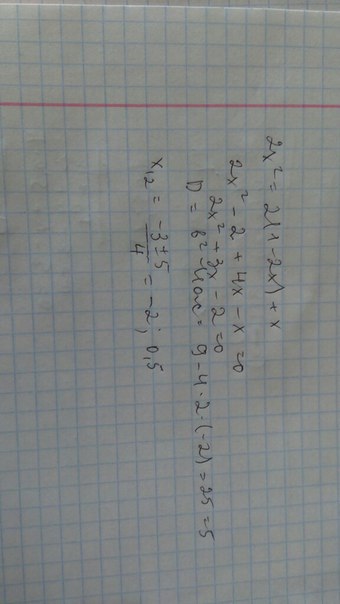 2x² = 2(1-2x)+x
2x² - 2 + 4x - x = 0
2x² + 3x - 2 = 0
D = b² - 4ac = 9 - 4 · 2 · (-2) = 25 = 5
x₁,₂ = (-3±5)/4 = -2; 0,5